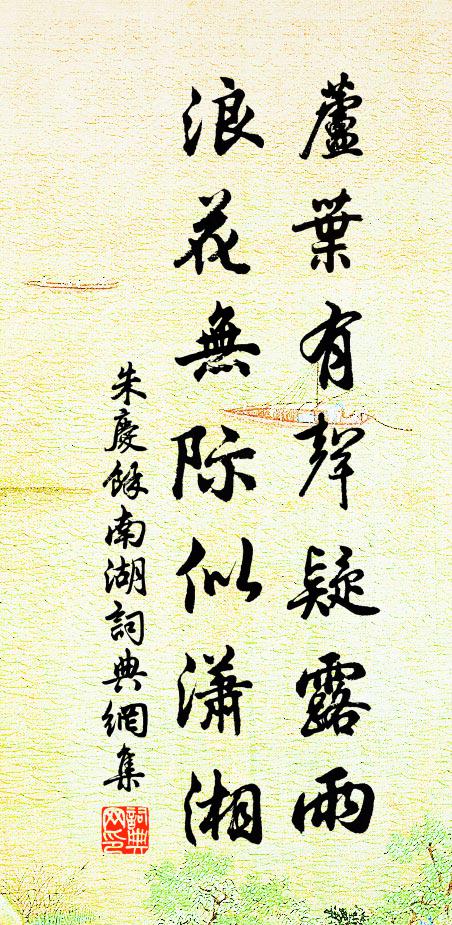 蘆葉有聲疑露雨
浪花無际似潇湘
朱慶餘南湖詞典網集
詞典网印